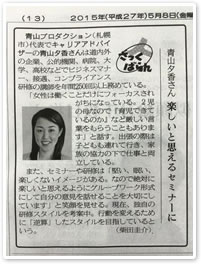 (13) 2015年(平成27年)5月8日(金曜
ざっくばらん
青山夕香さん 楽しいと思えるセミナーに
青山プロダクション(札幌
市)代表でキャリアアドバイ
ザーの青山夕香さんは道内外
の企業、公的機関、病院、大
学、高校などでビジネスマナ
ー、接遇、コンプライアンス
研修の講師を年間250回以上務めている。
「女性は働くことだけにフォーカスされ
がちになっている。2児
の母なので『育児できて
いるのか』など厳しい言
葉をもらうこともありま
す」と話す。出張の際は
子どもも連れて行き、家
族の協力の下で仕事と両
立している。
また、セミナーや研修は「堅い、眠い、
楽しくないイメージがある。なので絶対に
楽しいと思うようにグループワーク形式
にして自分の意見を話せることを大切に
しています」と笑顔を見せる。現在、独自の
研修スタイルを考案中。行動を変えるため
に「逆算」したスタイルを目指していると
いう。(柴田圭介)